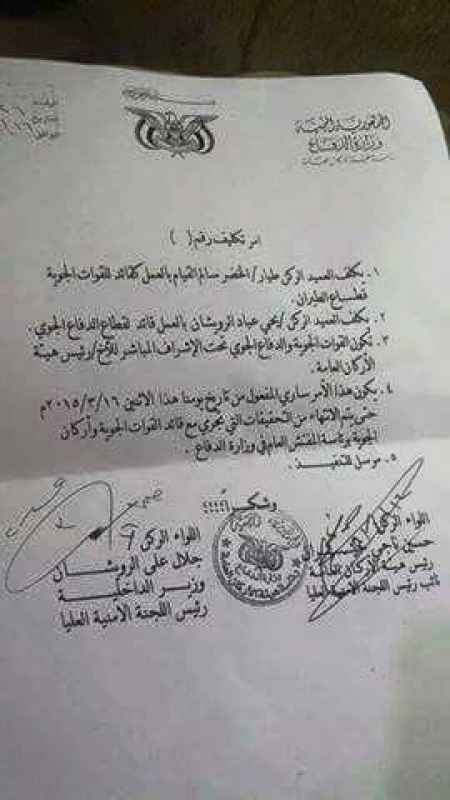 الجمهورية اليمنية
وزارة الدفاع
امر تكليف رقم ( )
١. يكلف العميد الركن طيار/ الخضر سالم القيام بالعمل كقائد للقوات الجوية
قطاع الطيران.
٢. يكلف العميد الركن/ يحي عباد الروشان بالعمل قائد لقطاع الدفاع الجوي.
٣. تكون القوات الجوية والدفاع الجوي تحت الإشراف المباشر للأخ/رئيس هيئة
الأركان العامة.
٤. يكون هذا الأمر ساري المفعول من تاريخ يومنا هذا الاثنين ٢٠١٥/٣/١٦م
حتى يتم الانتهاء من التحقيقات التي يجري مع قائد القوات الجوية وأركان
الجوية برئاسة المفتش العام في وزارة الدفاع.
٥. مرسل للتنفيذ.
وشكراً،،،،،
اللواء الركن
حسين ناجي
رئيس هيئة الأركان العامة
نائب رئيس اللجنة الأمنية العليا
اللواء الركن
جلال علي الرويشان
وزير الداخلية
رئيس اللجنة الأمنية العليا